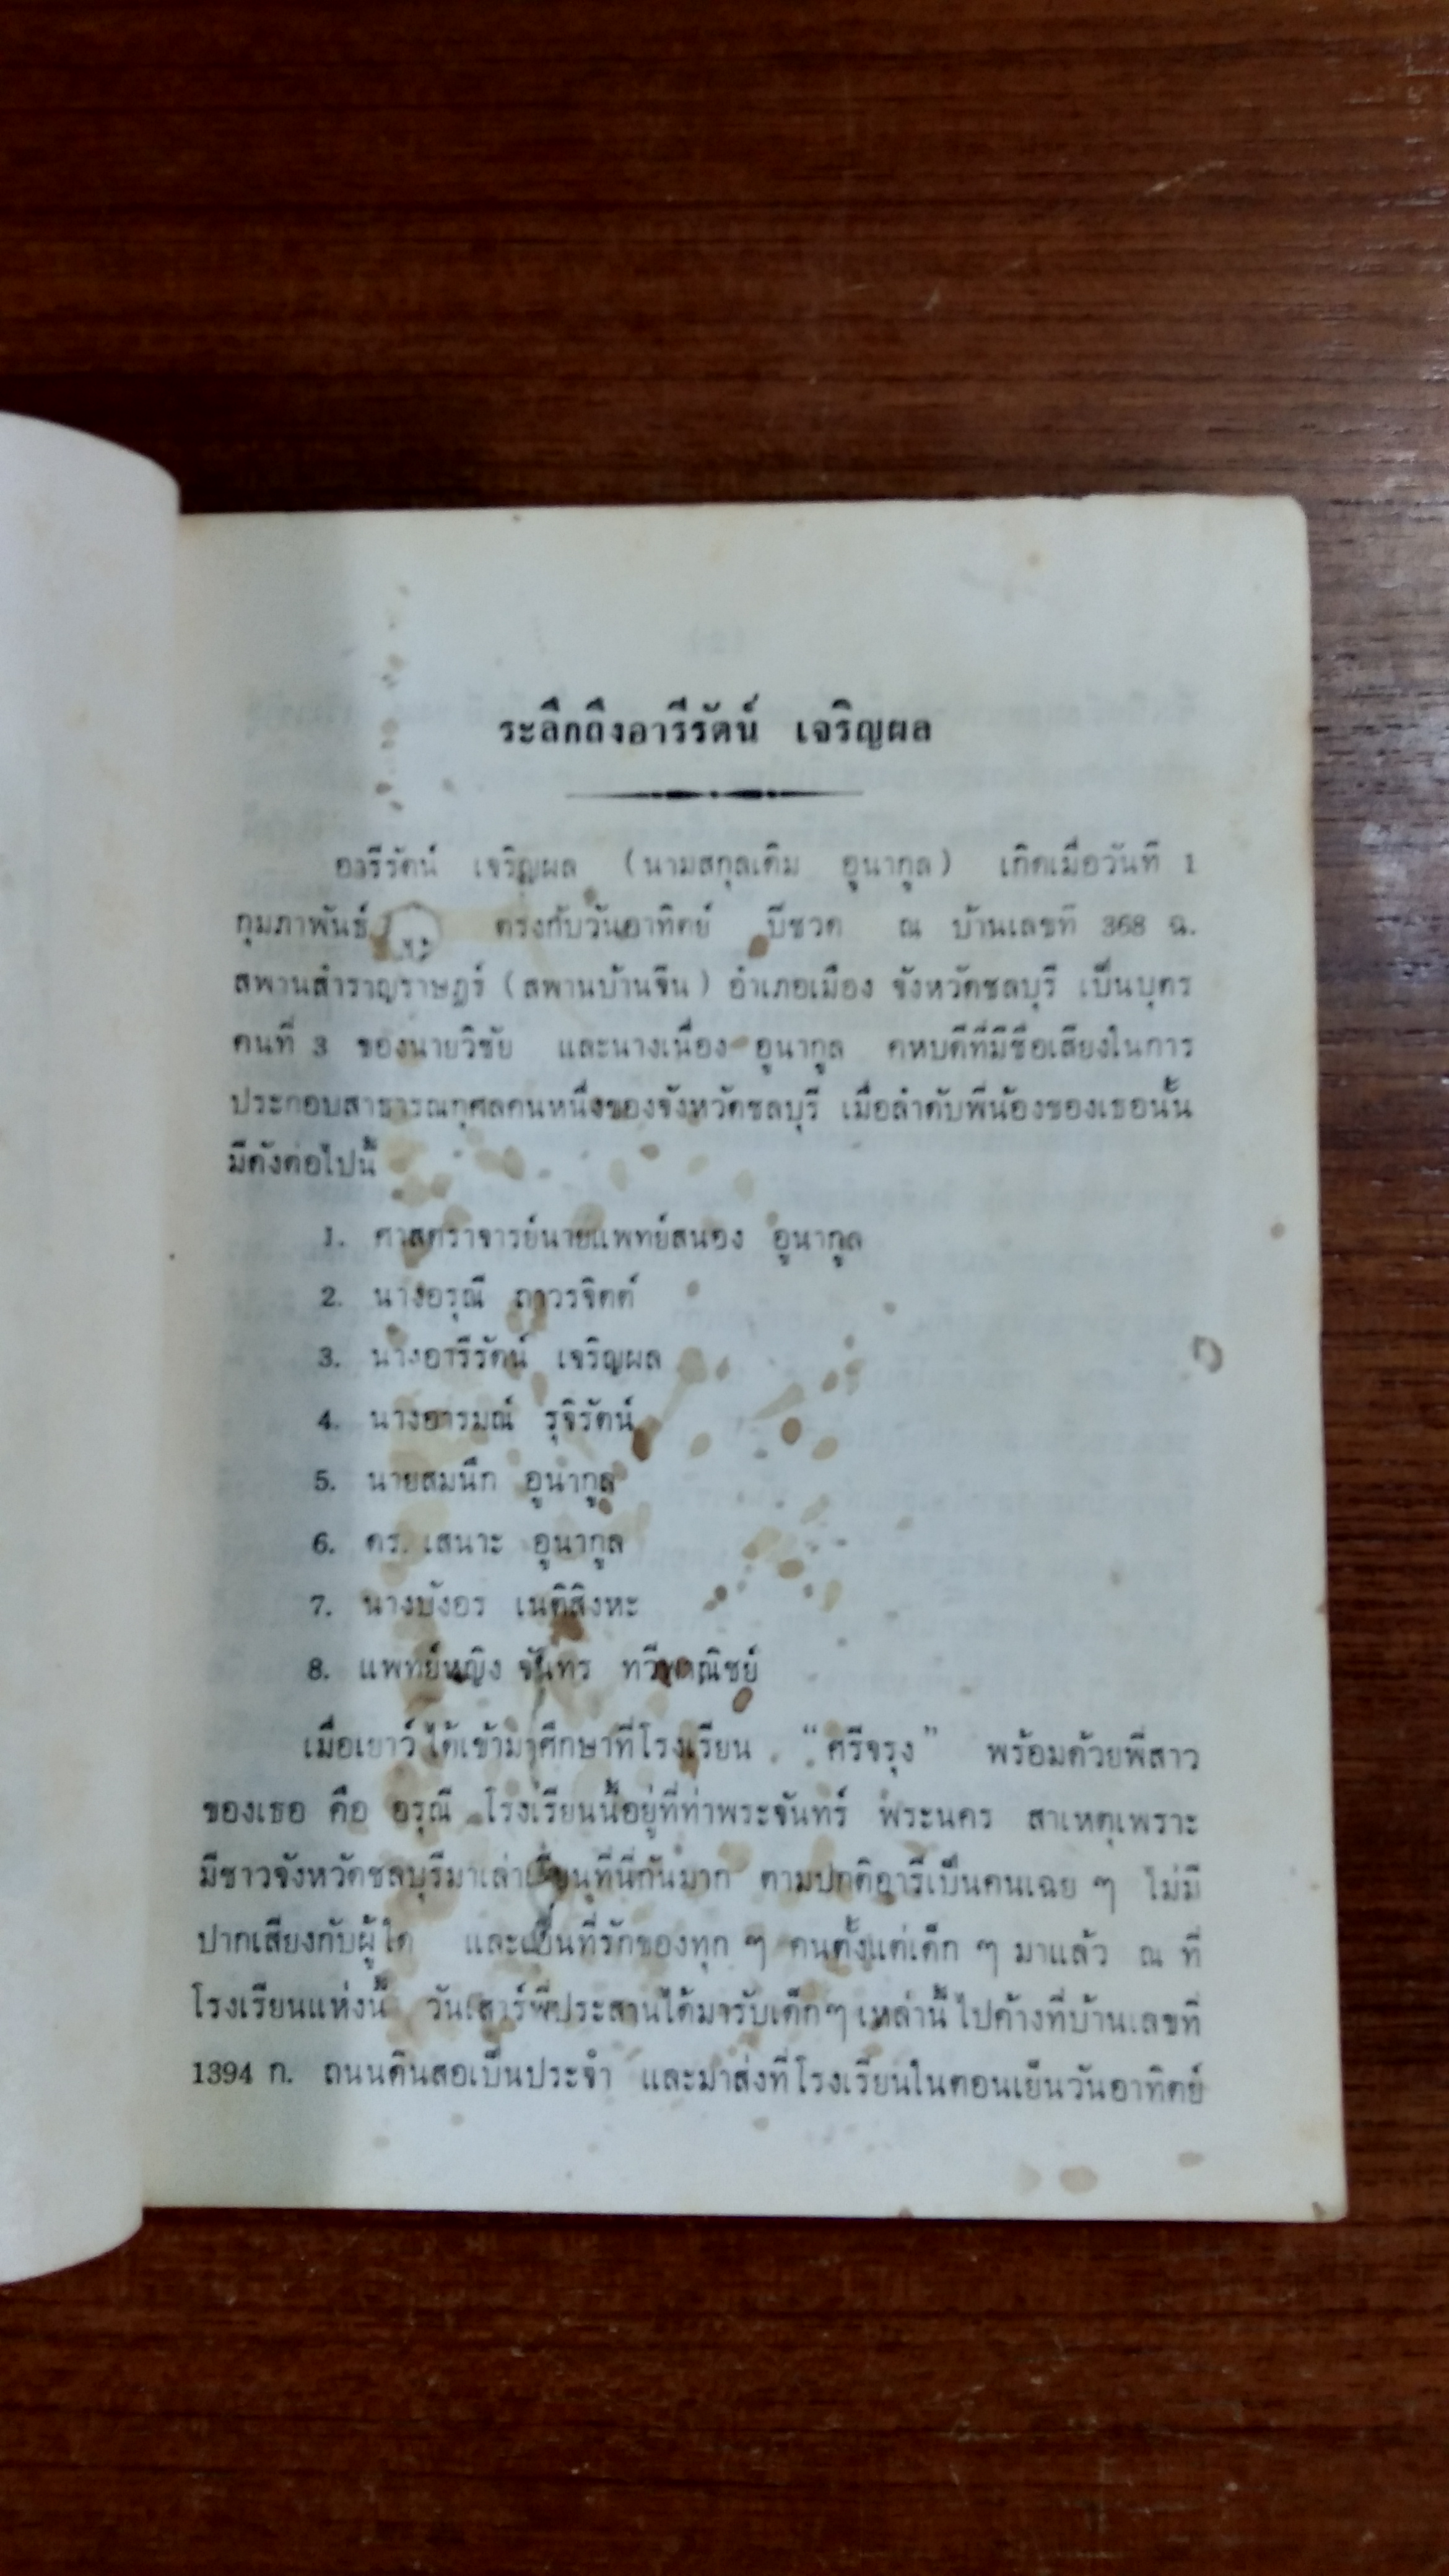 ระลึกถึงอารีรัตน์ เจริญผล
อารีรัตน์ เจริญผล (นามสกุลเดิม อูนากูล) เกิดเมื่อวันที่ 1
กุมภาพันธ์ ตรงกับวันอาทิตย์ ปีชวด ณ บ้านเลขที่ 368 ฉ.
สพานสำราญราษฎร์ (สพานบ้านจีน) อำเภอเมือง จังหวัดชลบุรี เป็นบุตร
คนที่ 3 ของนายวิชัย และนางเนื่อง อูนากูล คหบดีที่มีชื่อเสียงในการ
ประกอบสาธารณกุศลคนหนึ่งของจังหวัดชลบุรี เมื่อลำดับพี่น้องของเธอนั้น
มีดังต่อไปนี้
1. ศาสตราจารย์นายแพทย์สนอง อูนากูล
2. นางอรุณี ถาวรจิตต์
3. นางอารีรัตน์ เจริญผล
4. นางอารมณ์ รุจิรัตน์
5. นายสมนึก อูนากูล
6. ดร. เสนาะ อูนากูล
7. นางบังอร เนติสิงหะ
8. แพทย์หญิง จันทร ทวีพาณิชย์
เมื่อเยาว์ ได้เข้ามาศึกษาที่โรงเรียน “ศรีจรุง” พร้อมด้วยพี่สาว
ของเธอ คือ อรุณี โรงเรียนนี้อยู่ที่ท่าพระจันทร์ พระนคร สาเหตุเพราะ
มีชาวจังหวัดชลบุรีมาเล่าเรียนที่นี่กันมาก ตามปกติอารีเป็นคนเฉย ๆ ไม่มี
ปากเสียงกับผู้ใด และเป็นที่รักของทุก ๆ คนตั้งแต่เด็ก ๆ มาแล้ว ณ ที่
โรงเรียนแห่งนี้ วันเสาร์พี่ประสานได้มารับเด็กๆ เหล่านี้ ไปค้างที่บ้านเลขที่
1394 ก. ถนนดินสอเป็นประจำ และมาส่งที่โรงเรียนในตอนเย็นวันอาทิตย์